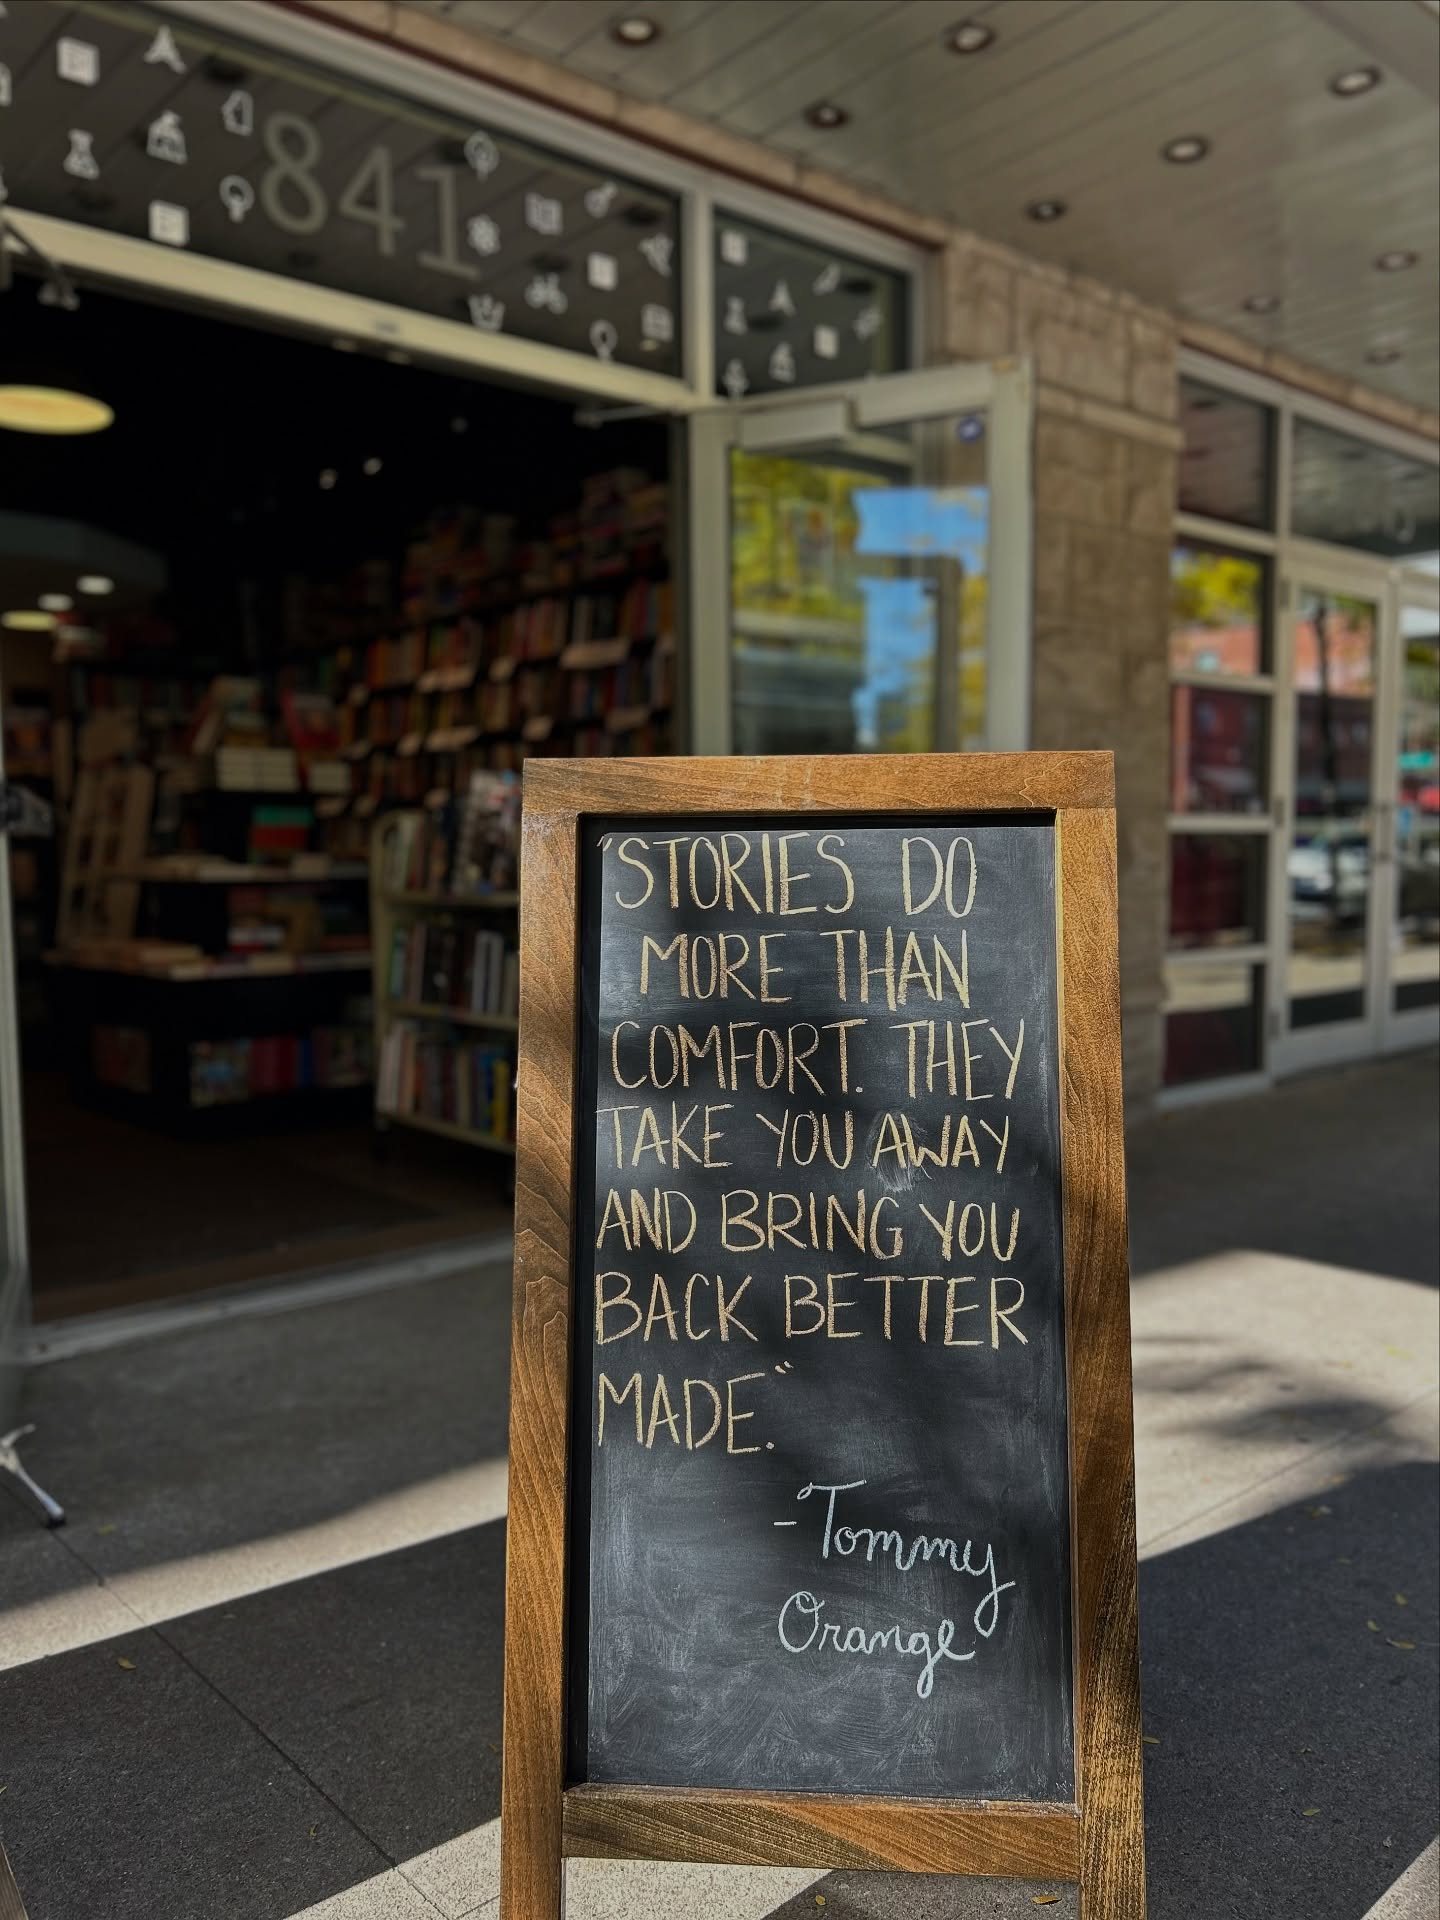 841
"STORIES DO
MORE THAN
COMFORT. THEY
TAKE YOU AWAY
AND BRING YOU
BACK BETTER
MADE."
-Tommy
Orange